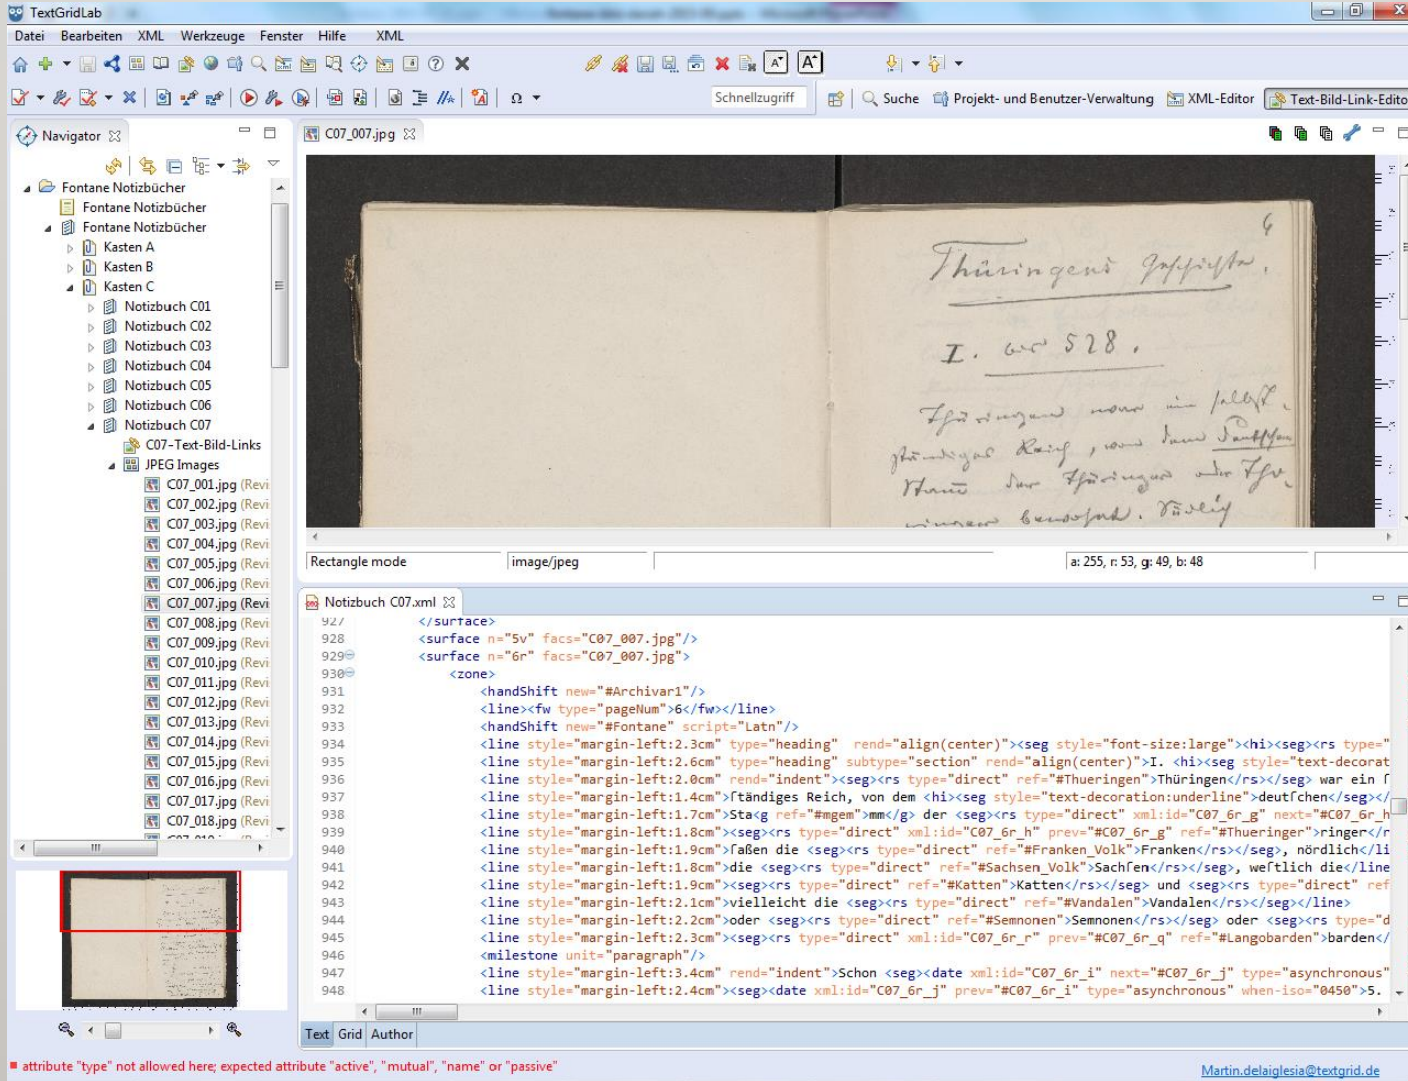 TextGridLab
Datei Bearbeiten XML Werkzeuge Fenster Hilfe XML
Schnellzugriff Suche Projekt- und Benutzer-Verwaltung XML-Editor Text-Bild-Link-Edito
Navigator
Fontane Notizbücher
Fontane Notizbücher
Fontane Notizbücher
Kasten A
Kasten B
Kasten C
Notizbuch C01
Notizbuch C02
Notizbuch C03
Notizbuch C04
Notizbuch C05
Notizbuch C06
Notizbuch C07
C07-Text-Bild-Links
JPEG Images
C07_001.jpg (Revi
C07_002.jpg (Revi
C07_003.jpg (Revi
C07_004.jpg (Revi
C07_005.jpg (Revi
C07_006.jpg (Revi
C07_007.jpg (Revi
C07_008.jpg (Revi
C07_009.jpg (Revi
C07_010.jpg (Revi
C07_011.jpg (Revi
C07_012.jpg (Revi
C07_013.jpg (Revi
C07_014.jpg (Revi
C07_015.jpg (Revi
C07_016.jpg (Revi
C07_017.jpg (Revi
C07_018.jpg (Revi
C07_007.jpg
6
Thüringens Geschichte.
I. bis 528.
Thüringen war ein selbst-
ständiges Reich, von dem deutschen
Stamm der Thüringer oder Thü-
ringer bewohnt. Südlich
Rectangle mode image/jpeg a: 255, r: 53, g: 49, b: 48
Notizbuch C07.xml
927 </surface>
928 <surface n="5v" facs="C07_007.jpg"/>
929 <surface n="6r" facs="C07_007.jpg">
930 <zone>
931 <handShift new="#Archivar1"/>
932 <line><fw type="pageNum">6</fw></line>
933 <handShift new="#Fontane" script="Latn"/>
934 <line style="margin-left:2.3cm" type="heading" rend="align(center)"><seg style="font-size:large"><hi><seg><rs type="
935 <line style="margin-left:2.6cm" type="heading" subtype="section" rend="align(center)">I. <hi><seg style="text-decorat
936 <line style="margin-left:2.0cm" rend="indent"><seg><rs type="direct" ref="#Thueringen">Thüringen</rs></seg> war ein ſ
937 <line style="margin-left:1.4cm">ſtändiges Reich, von dem <hi><seg style="text-decoration:underline">deutſchen</seg></
938 <line style="margin-left:1.7cm">Sta<g ref="#mgem">mm</g> der <seg><rs type="direct" xml:id="C07_6r_g" next="#C07_6r_h
939 <line style="margin-left:1.8cm"><seg><rs type="direct" xml:id="C07_6r_h" prev="#C07_6r_g" ref="#Thueringer">ringer</r
940 <line style="margin-left:1.9cm">ſaßen die <seg><rs type="direct" ref="#Franken_Volk">Franken</rs></seg>, nördlich</li
941 <line style="margin-left:1.8cm">die <seg><rs type="direct" ref="#Sachsen_Volk">Sachſen</rs></seg>, weſtlich die</line
942 <line style="margin-left:1.9cm"><seg><rs type="direct" ref="#Katten">Katten</rs></seg> und <seg><rs type="direct" ref
943 <line style="margin-left:2.1cm">vielleicht die <seg><rs type="direct" ref="#Vandalen">Vandalen</rs></seg></line>
944 <line style="margin-left:2.2cm">oder <seg><rs type="direct" ref="#Semnonen">Semnonen</rs></seg> oder <seg><rs type="d
945 <line style="margin-left:2.3cm"><seg><rs type="direct" xml:id="C07_6r_r" prev="#C07_6r_q" ref="#Langobarden">barden</
946 <milestone unit="paragraph"/>
947 <line style="margin-left:3.4cm" rend="indent">Schon <seg><date xml:id="C07_6r_i" next="#C07_6r_j" type="asynchronous"
948 <line style="margin-left:2.4cm"><seg><date xml:id="C07_6r_j" prev="#C07_6r_i" type="asynchronous" when-iso="0450">5.
Text Grid Author
attribute "type" not allowed here; expected attribute "active", "mutual", "name" or "passive"
Martin.delaiglesia@textgrid.de